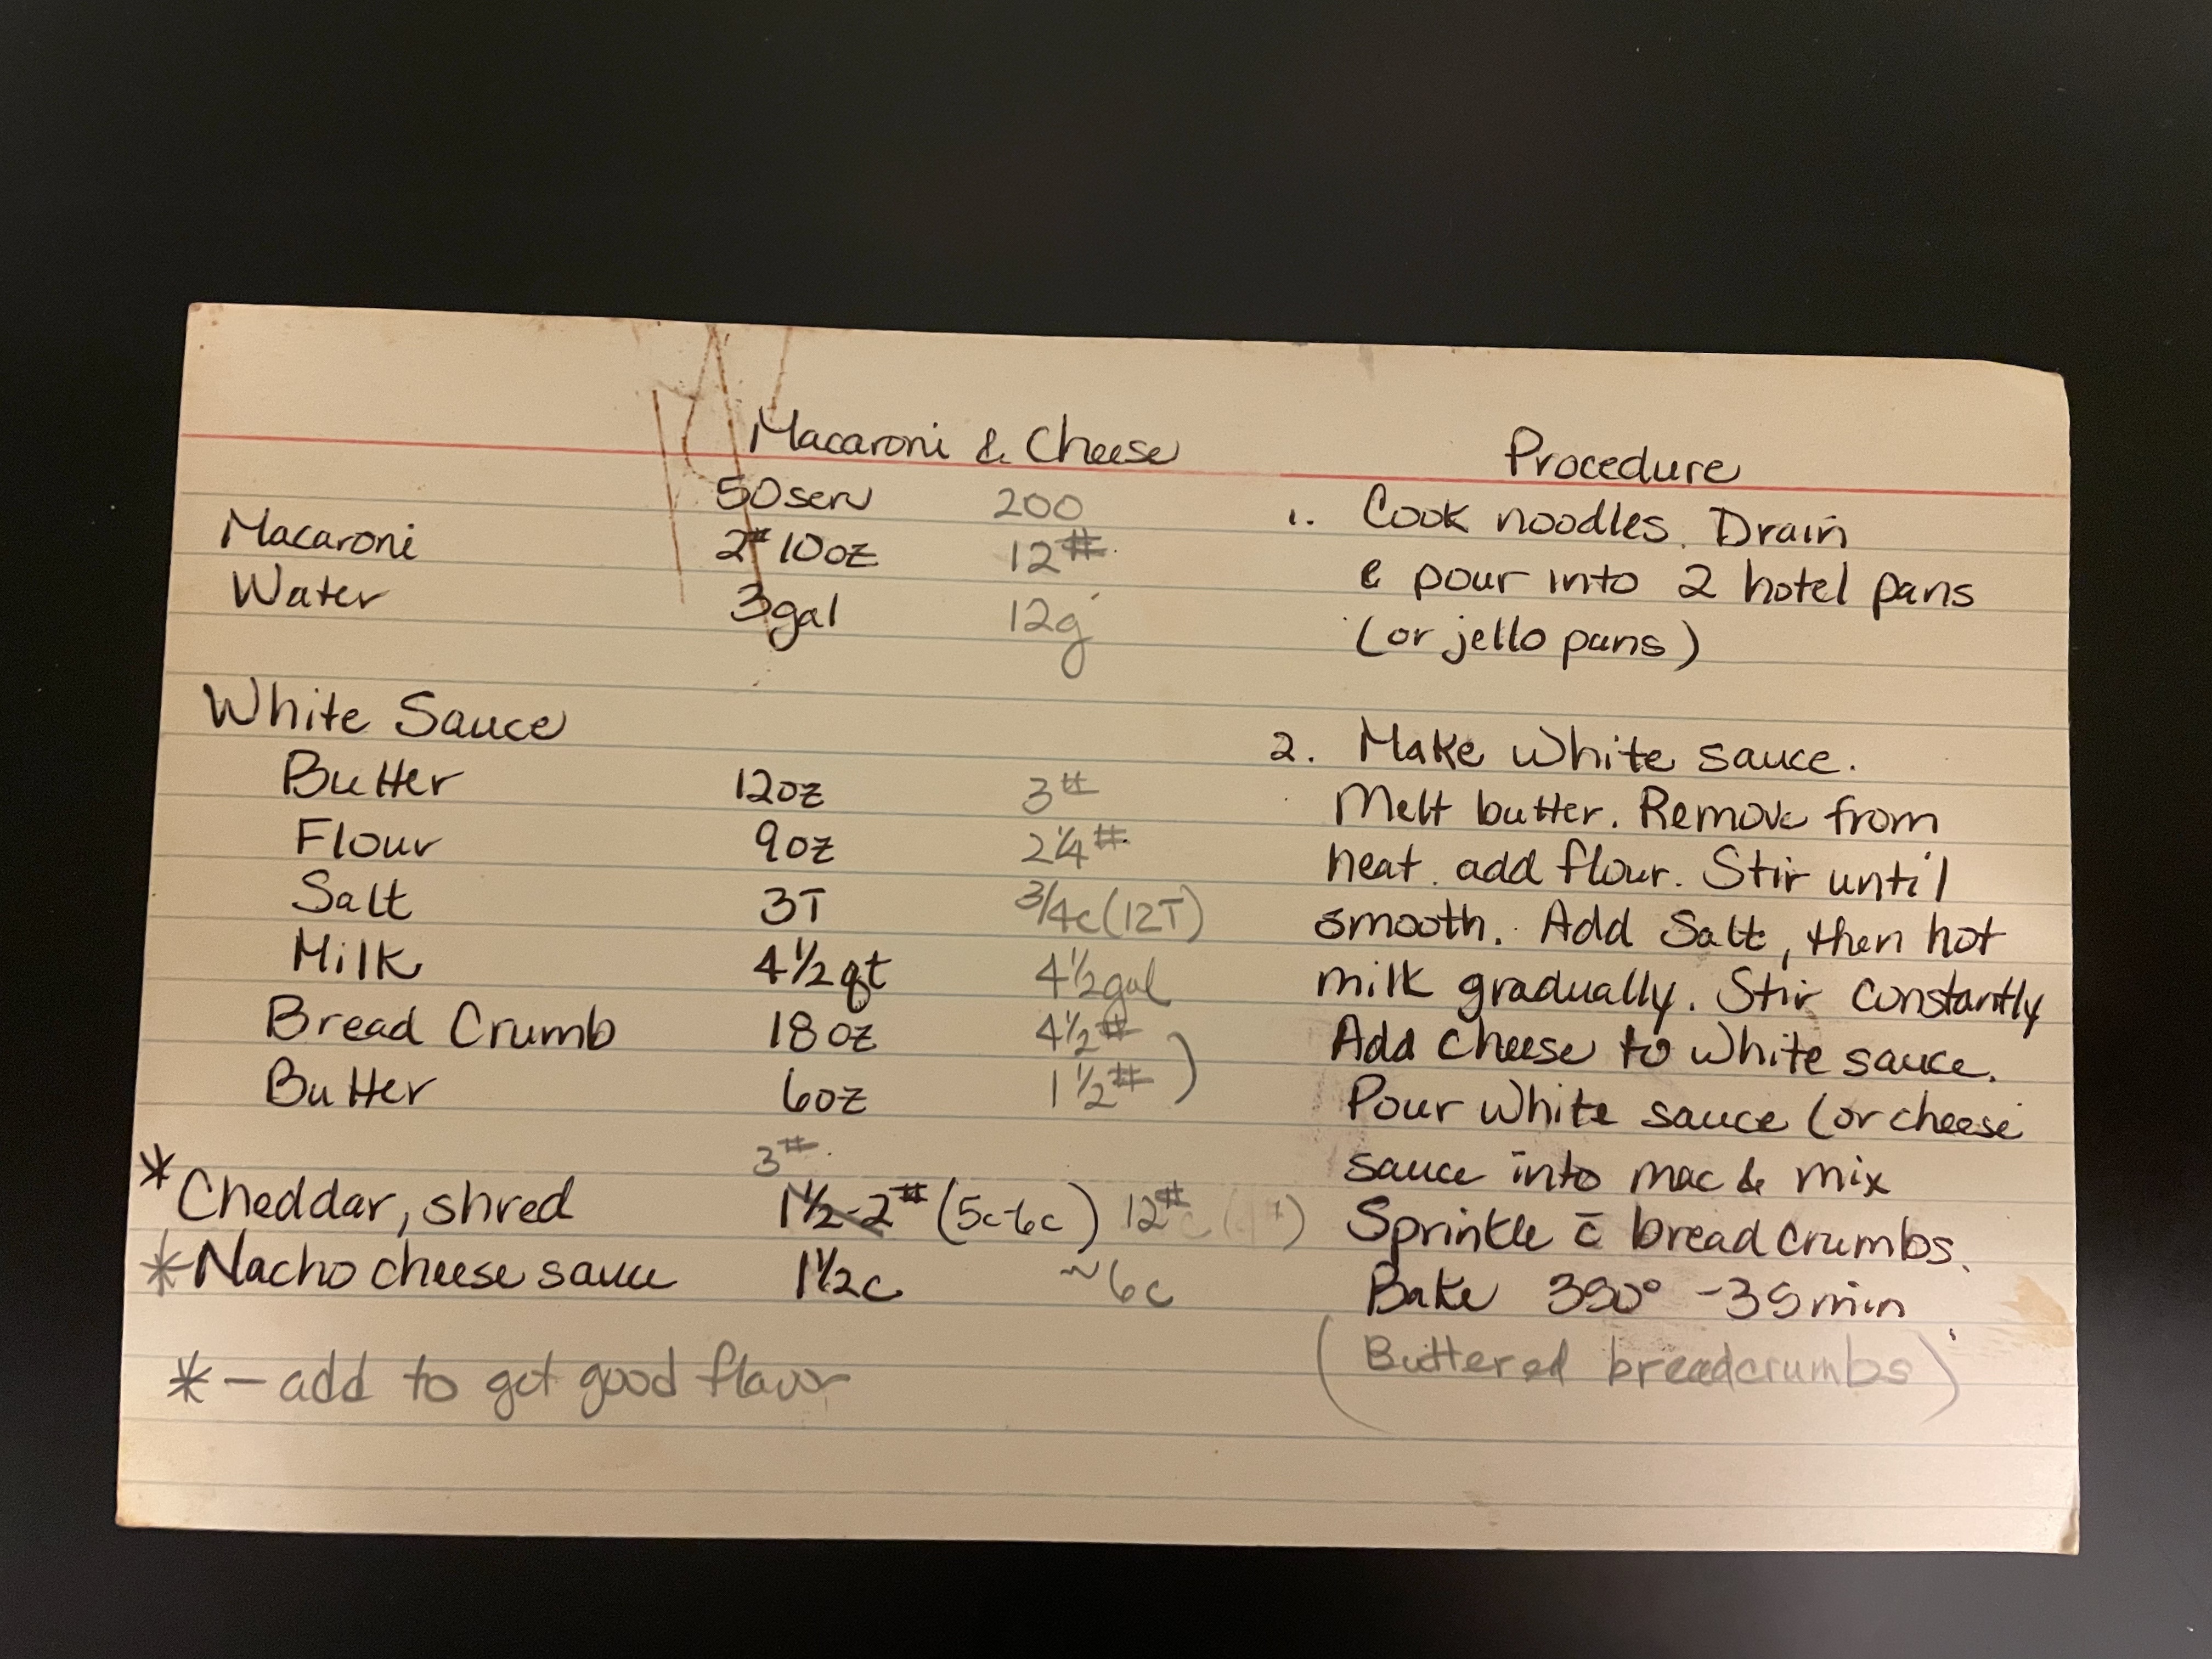 Macaroni & Cheese
50 serv 200
Macaroni 2# 10oz 12#
Water 3gal 12g
White Sauce
Butter 12oz 3#
Flour 9oz 2 1/4#
Salt 3T 3/4c (12T)
Milk 4 1/2 qt 4 1/2 gal
Bread Crumb 18 oz 4 1/2#
Butter 6oz 1 1/2# )
3#
* Cheddar, shred 1 1/2-2# (5c-6c) 12#
* Nacho cheese sauce 1 1/2c ~6c
* - add to get good flavor
Procedure
1. Cook noodles. Drain
& pour into 2 hotel pans
(or jello pans)
2. Make white sauce.
Melt butter. Remove from
heat. add flour. Stir until
smooth. Add Salt, then hot
milk gradually. Stir constantly
Add cheese to white sauce.
Pour white sauce (or cheese
sauce into mac & mix
Sprinkle c̄ bread crumbs.
Bake 350° - 35min
(Buttered breadcrumbs)